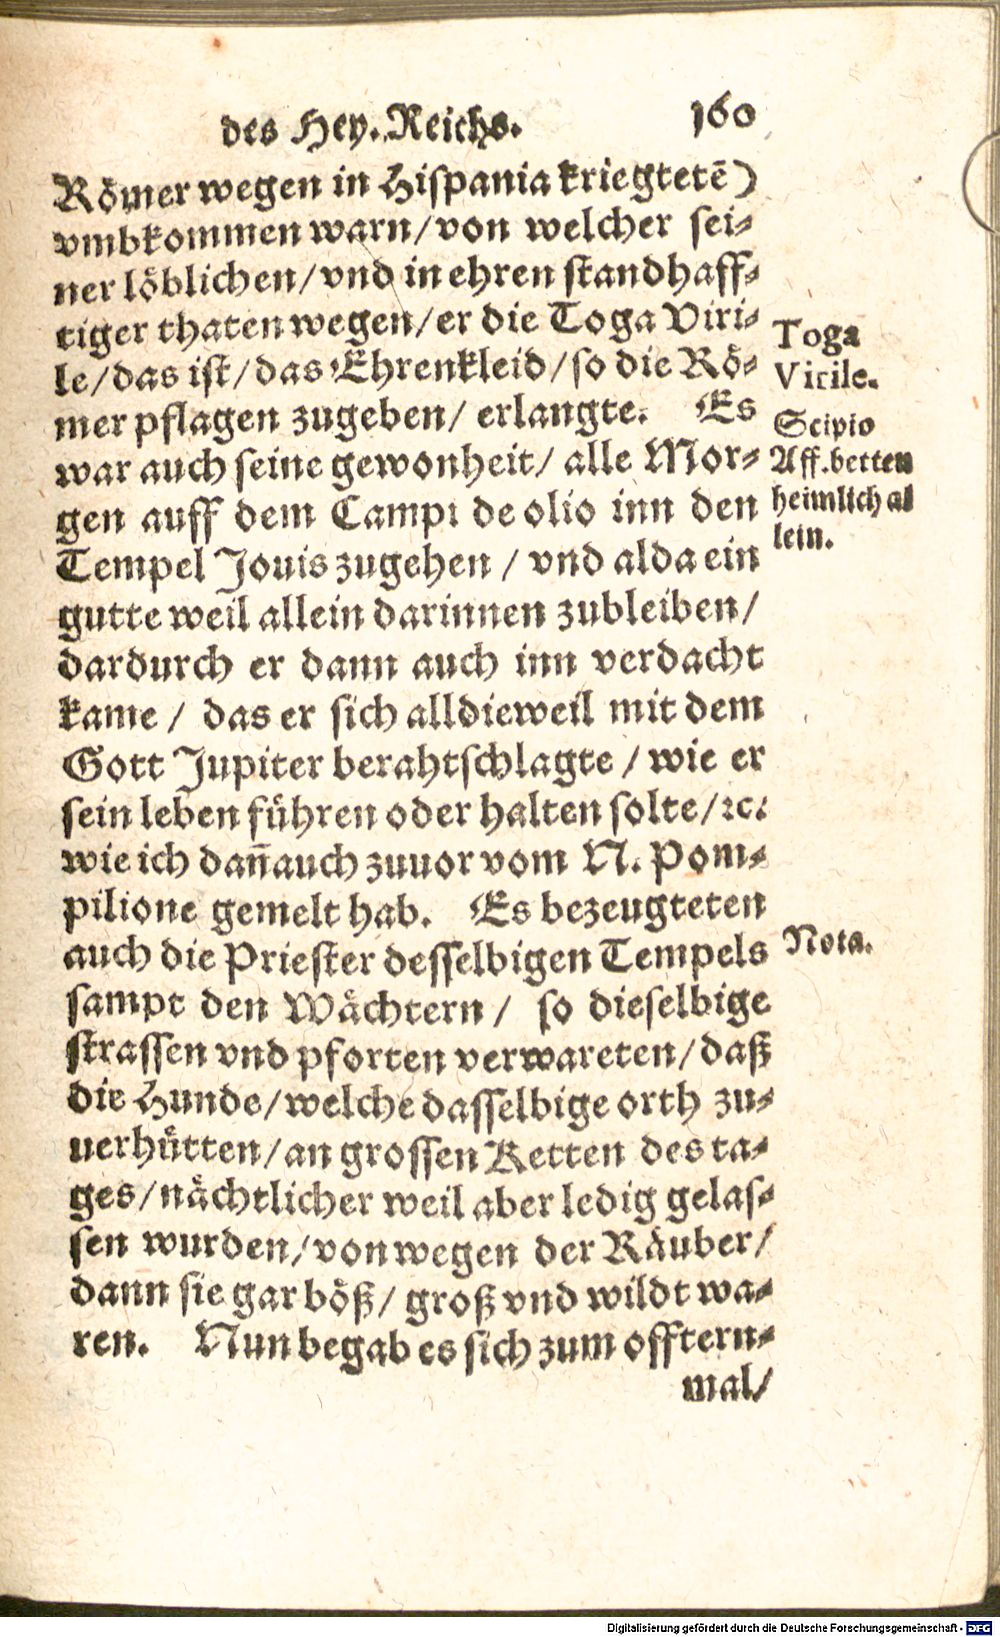 des Hey. Reichs. 160
Römer wegen in Hispania kriegtetē)
vmbkommen warn/ von welcher sei-
ner löblichen/ vnd in ehren standhaff-
tiger thaten wegen/ er die Toga Viri-
le/ das ist/ das Ehrenkleid/ so die Rö-
mer pflagen zugeben/ erlangte. Es
war auch seine gewonheit/ alle Mor-
gen auff dem Campi de olio inn den
Tempel Jouis zugehen / vnd alda ein
gutte weil allein darinnen zubleiben/
dardurch er dann auch inn verdacht
kame / das er sich alldieweil mit dem
Gott Jupiter berahtschlagte / wie er
sein leben führen oder halten solte/ ꝛc.
wie ich dañ auch zuuor vom N. Pom-
pilione gemelt hab. Es bezeugteten
auch die Priester desselbigen Tempels
sampt den Wächtern / so dieselbige
strassen vnd pforten verwareten/ daß
die Hunde/ welche dasselbige orth zu-
uerhütten/ an grossen Ketten des ta-
ges/ nächtlicher weil aber ledig gelas-
sen wurden/ von wegen der Räuber/
dann sie gar böß/ groß vnd wildt wa-
ren. Nun begab es sich zum offtern-
mal/
Toga
Virile.
Scipio
Aff. betten
heimlich al
lein.
Nota.
Digitalisierung gefördert durch die Deutsche Forschungsgemeinschaft - DFG